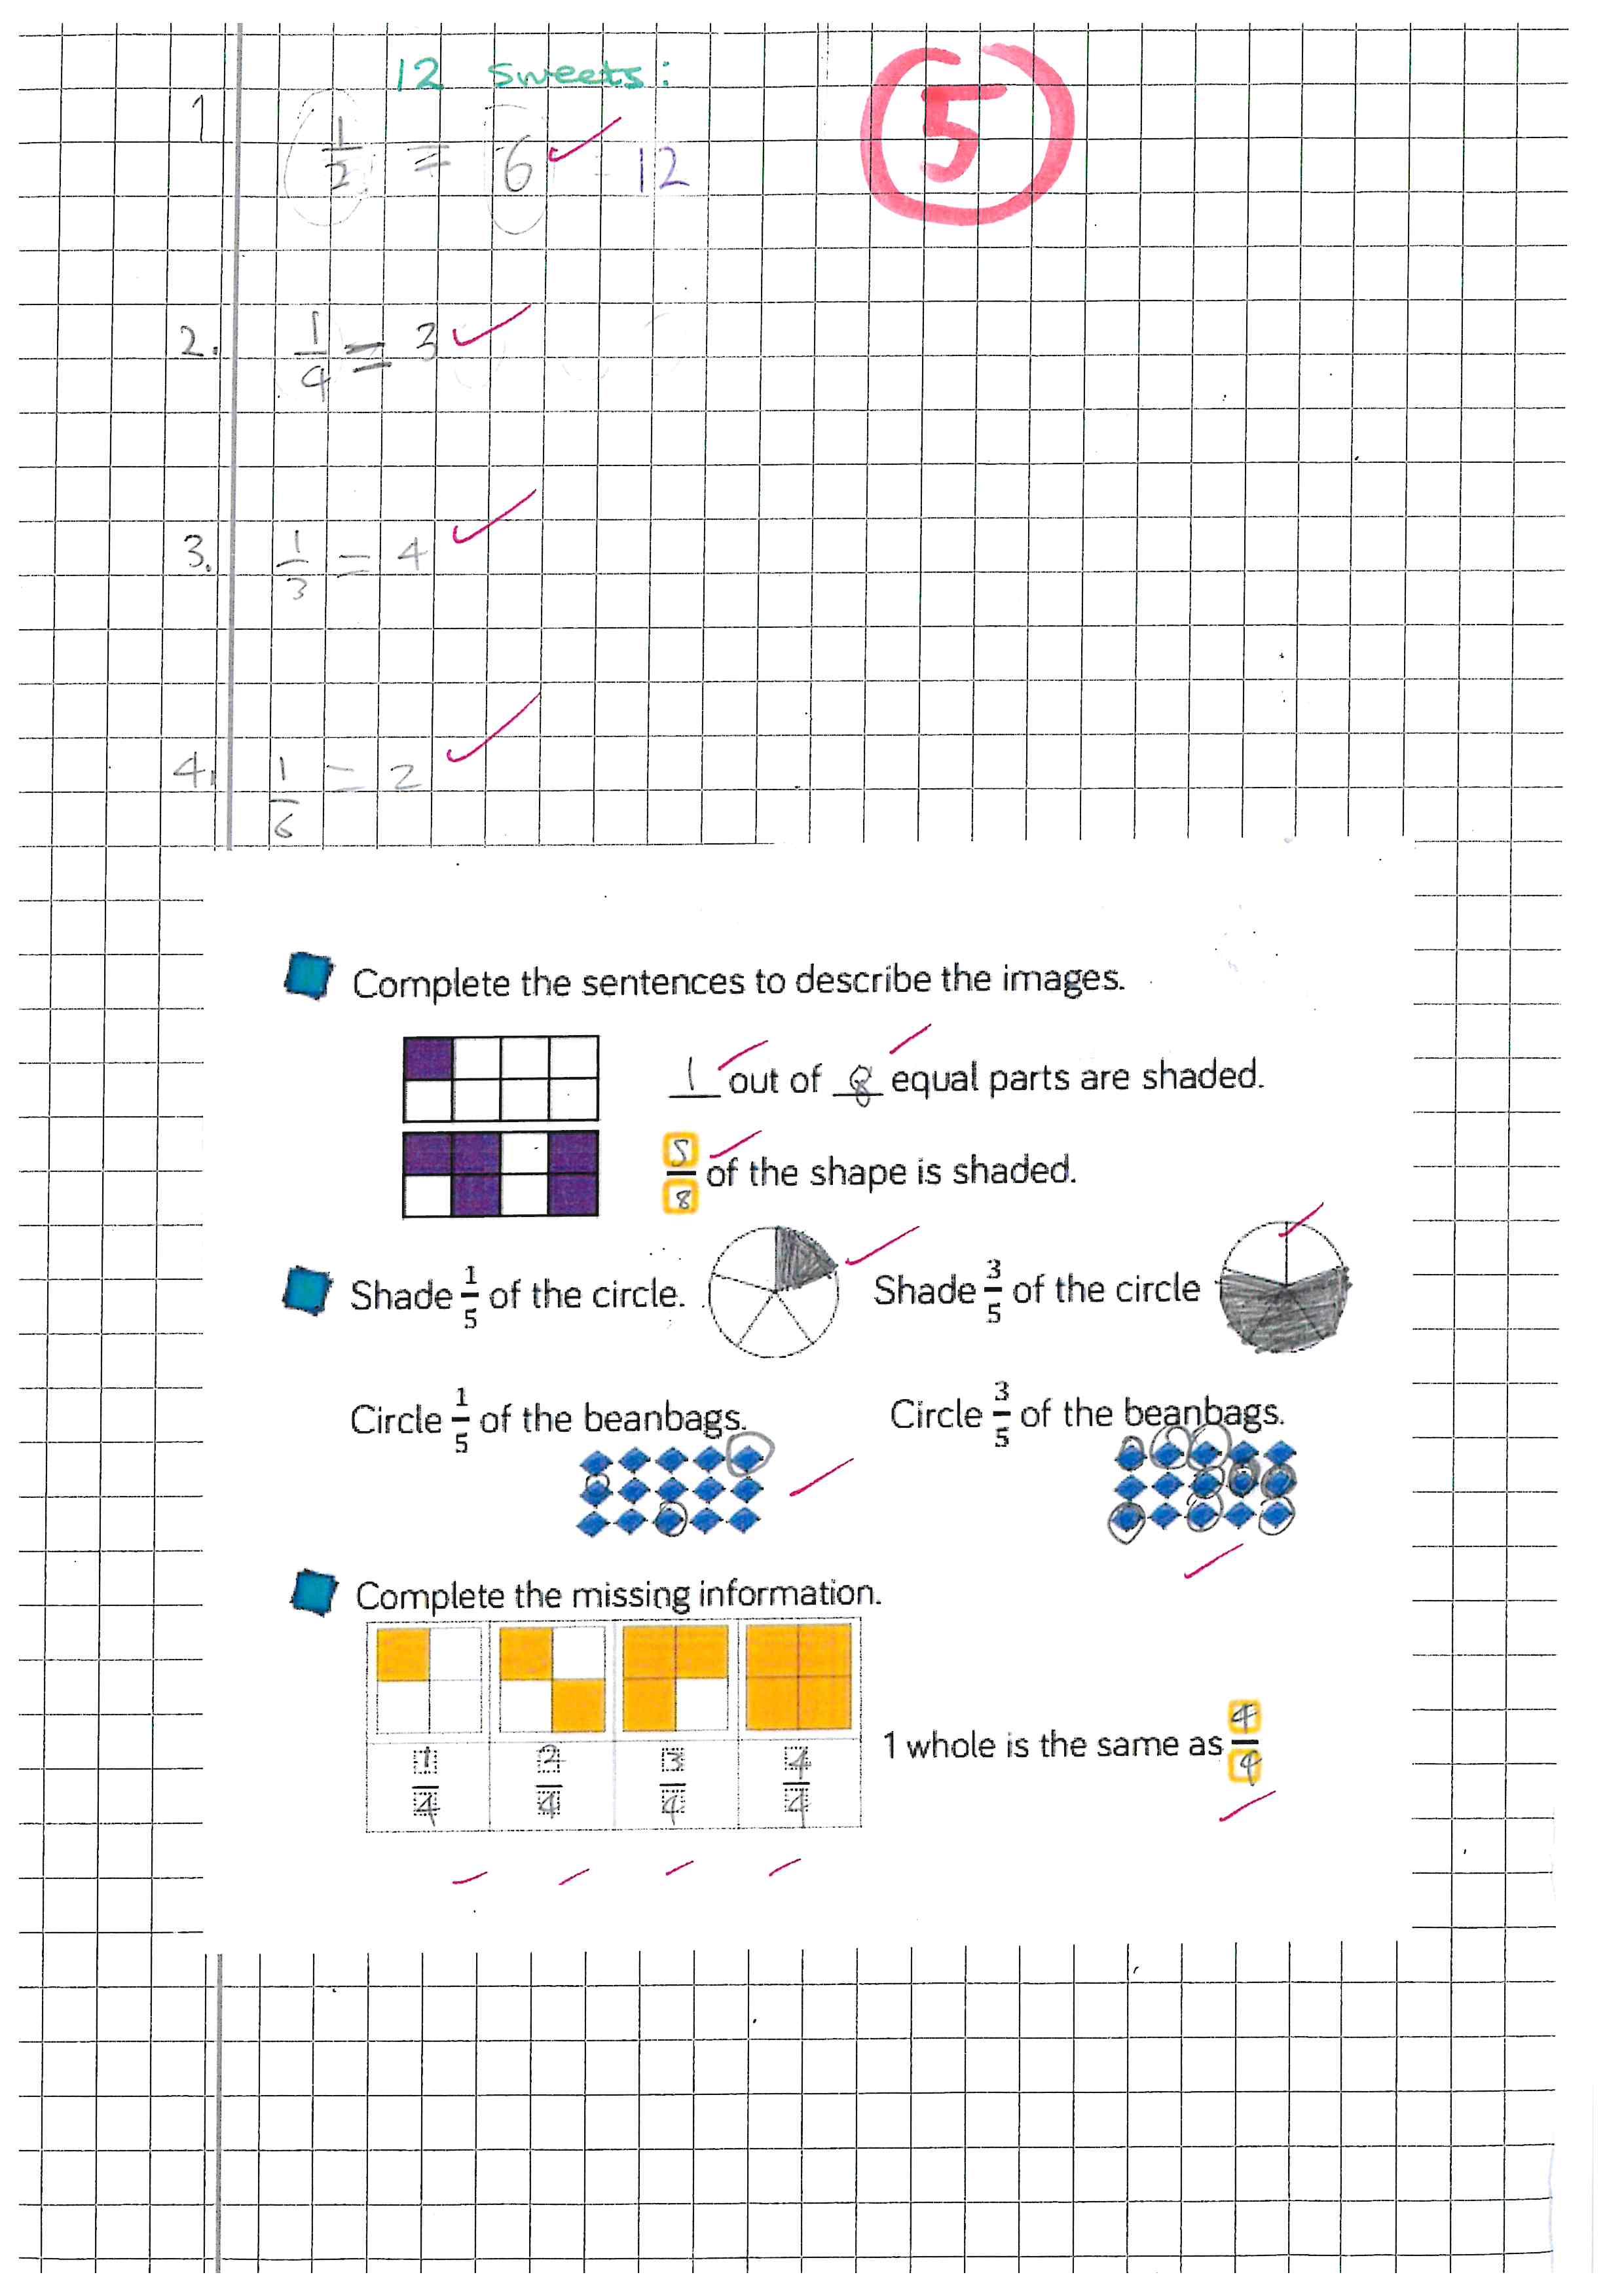 12 sweets:
5
1 1/2 = 6 = 12
2. 1/4 = 3
3. 1/3 = 4
4. 1/6 = 2
Complete the sentences to describe the images.
1 out of 8 equal parts are shaded.
5/8 of the shape is shaded.
Shade 1/5 of the circle. Shade 3/5 of the circle
Circle 1/5 of the beanbags. Circle 3/5 of the beanbags.
Complete the missing information.
1/4 2/4 3/4 4/4
1 whole is the same as 4/4